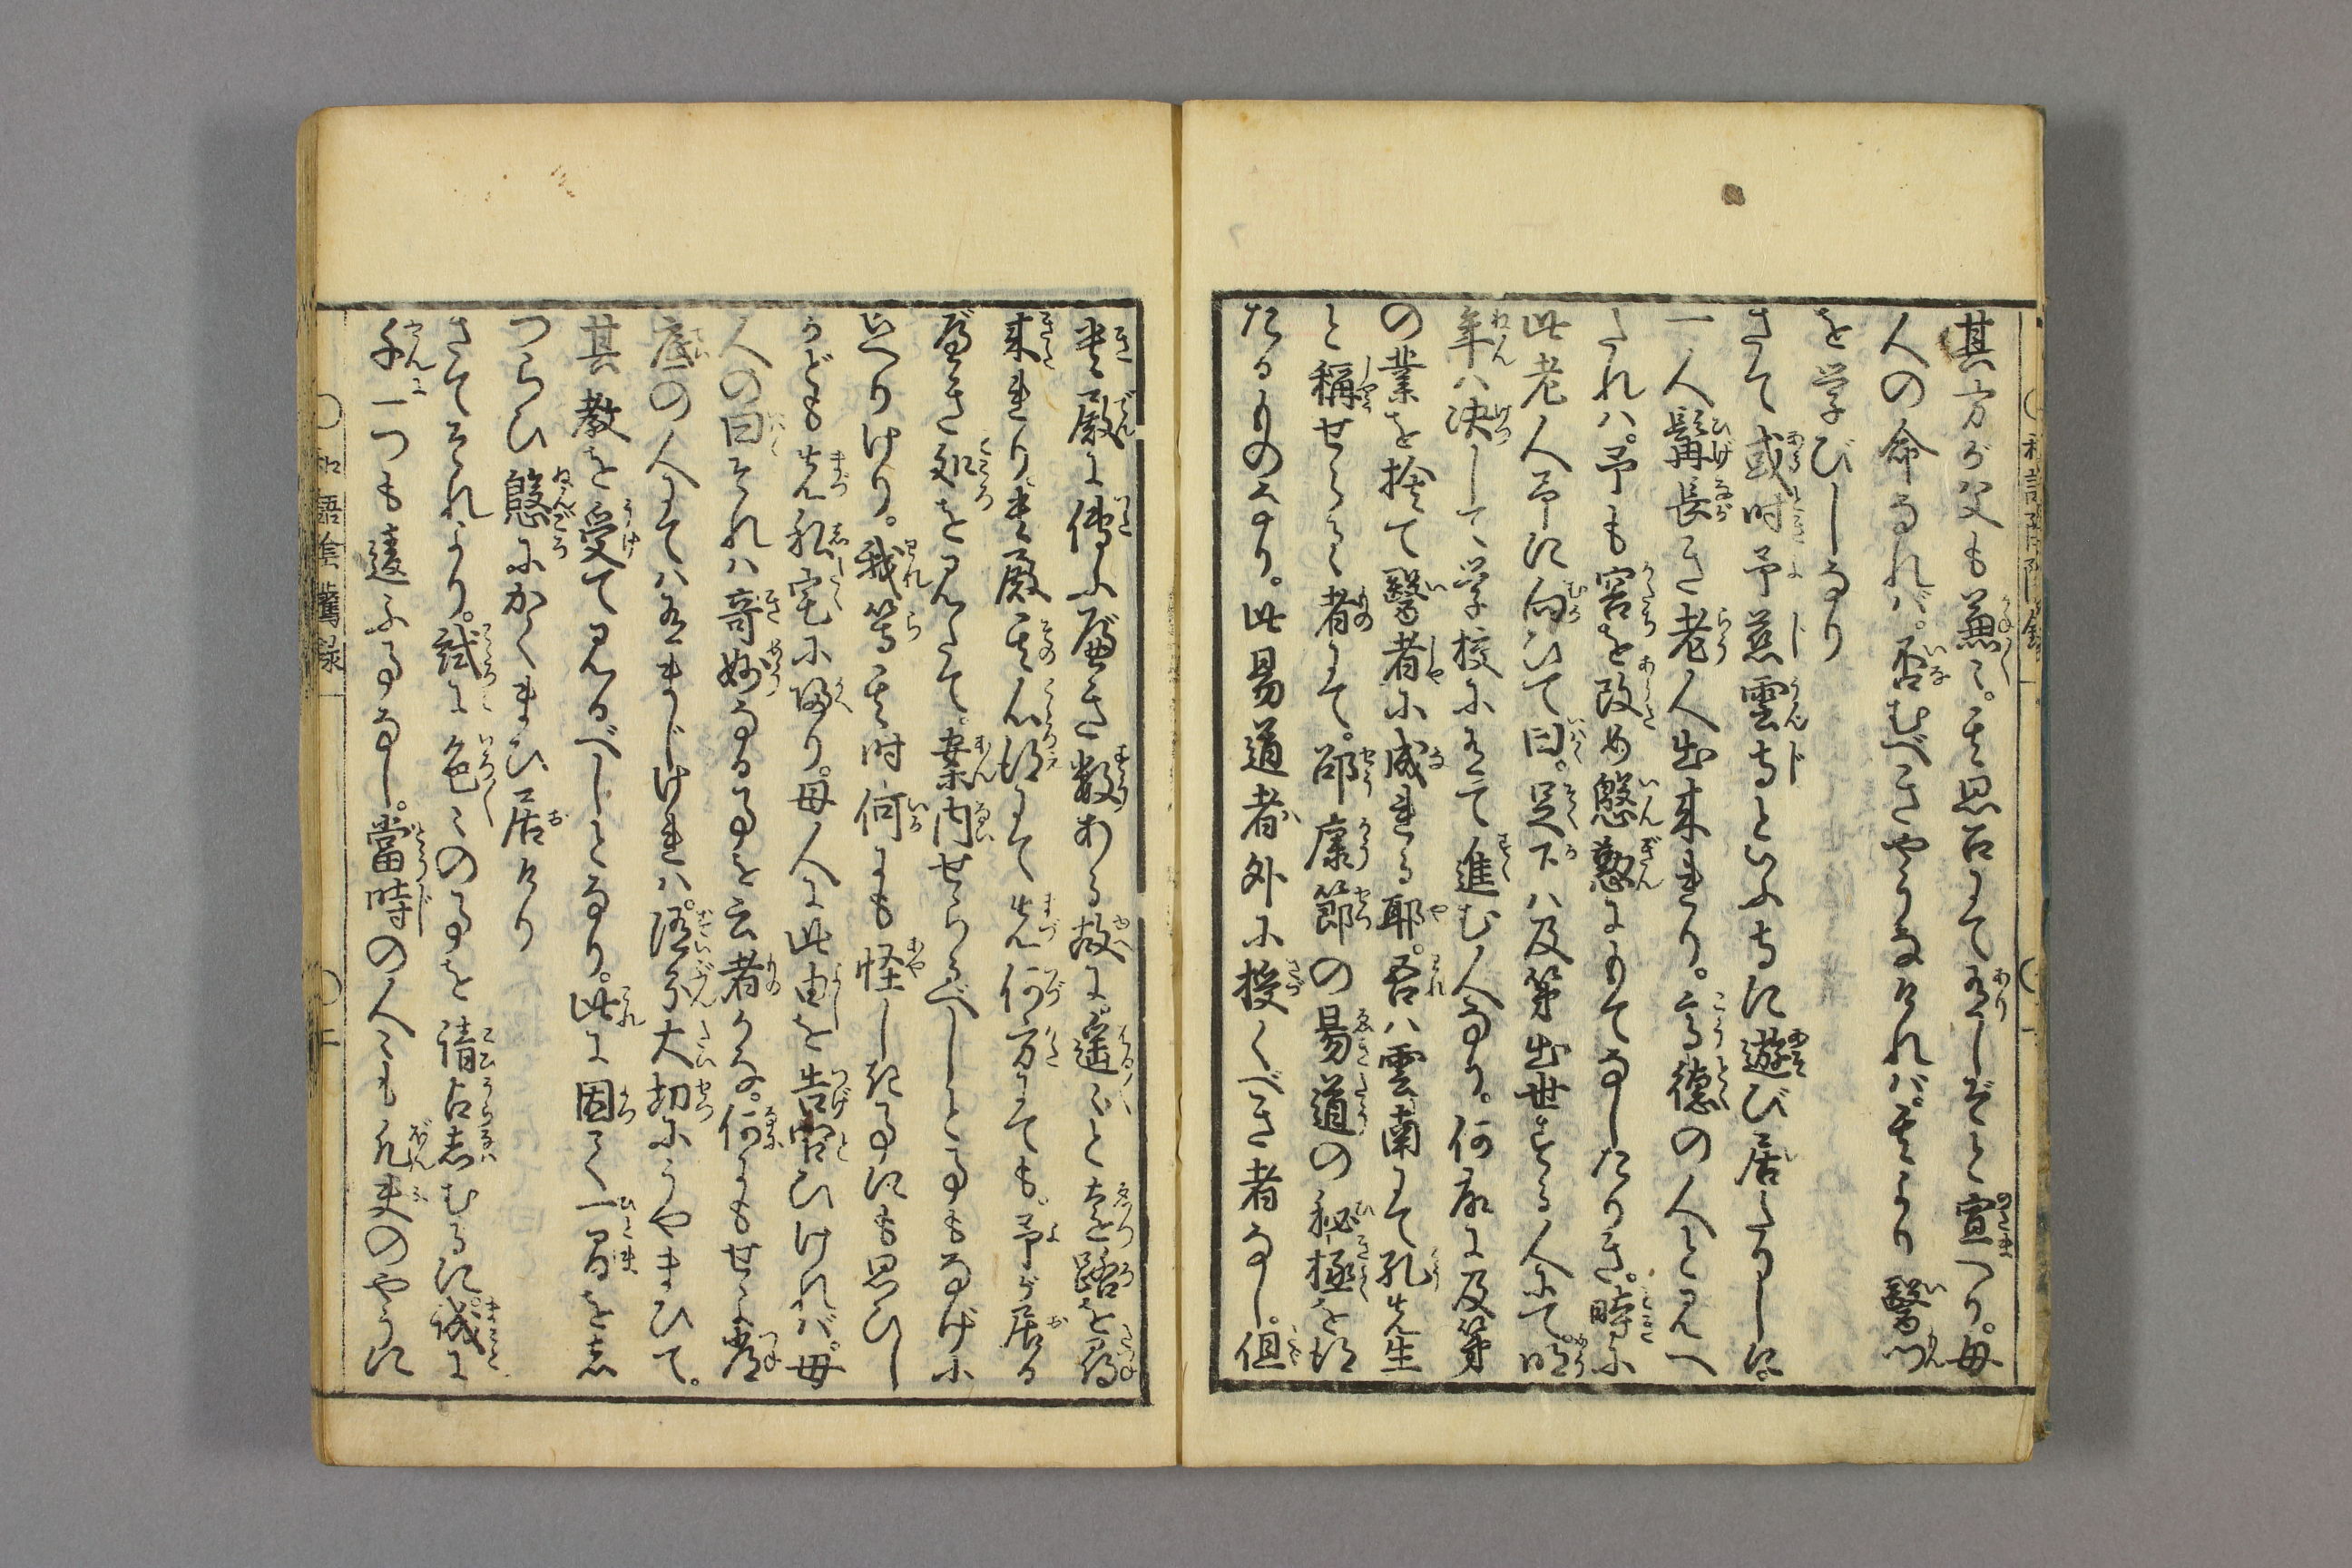 其方が父も兼〻。其思召にて有しぞと宣へり。母
人の命なれバ。否むべきやうなけれバ。其より醫門
を学びしなり
さて或時予慈雲寺といふ寺に遊び居たりしに。
一人髯長き老人出来れり。高徳の人と見へ
たれハ。予も容を改め慇懃にもてなしたりき。時に
此老人予に向ひて曰。足下ハ及第出世する人にて。明
年ハ决して学校に於て進む人なり。何故に及第
の業を捨て醫者に成れる耶。吾ハ雲南にて孔先生
と稱せらるゝ者にて。邵康節の易道の秘極を得
たるものなり。此易道者外に授くべき者なし。但
貴殿に傳ふ應き数ある故に。遥〻と遠路を尋
来れり貴殿其心得にて先何方にても。予が居る
應き処を見たて。案内せらるべしと事もなげに
いへりけり。我等其時何にも怪しき事に思ひし
かども先私宅に歸り。母人に此由を告問ひけれバ。母
人の曰それハ奇妙なる事を云者かな。何にもせよ常
底の人にてハ有まじけれハ。随分大切にうやまひて。
其教を受て見るべしとなり。此に因て一間をし
つらひ慇にかくまひ居けり
さてそれより。試に色〻の事を請占しむるに。誠に
千に一つも違ふ事なし。當時の人〻も凡夫のやうに
和語陰隲録
和語陰隲録